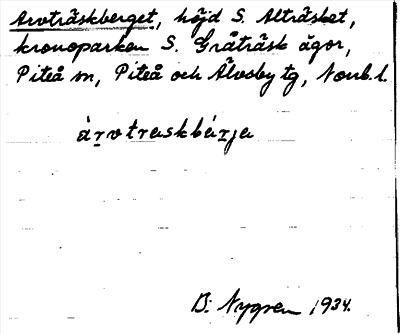 Arvträskberget, höjd S. Alträsket,
kronoparken S. Gråträsk ägor,
Piteå sn, Piteå och Älvsby tg, Norrb. l.
àrvtraskbárja
B. Nygren 1934.